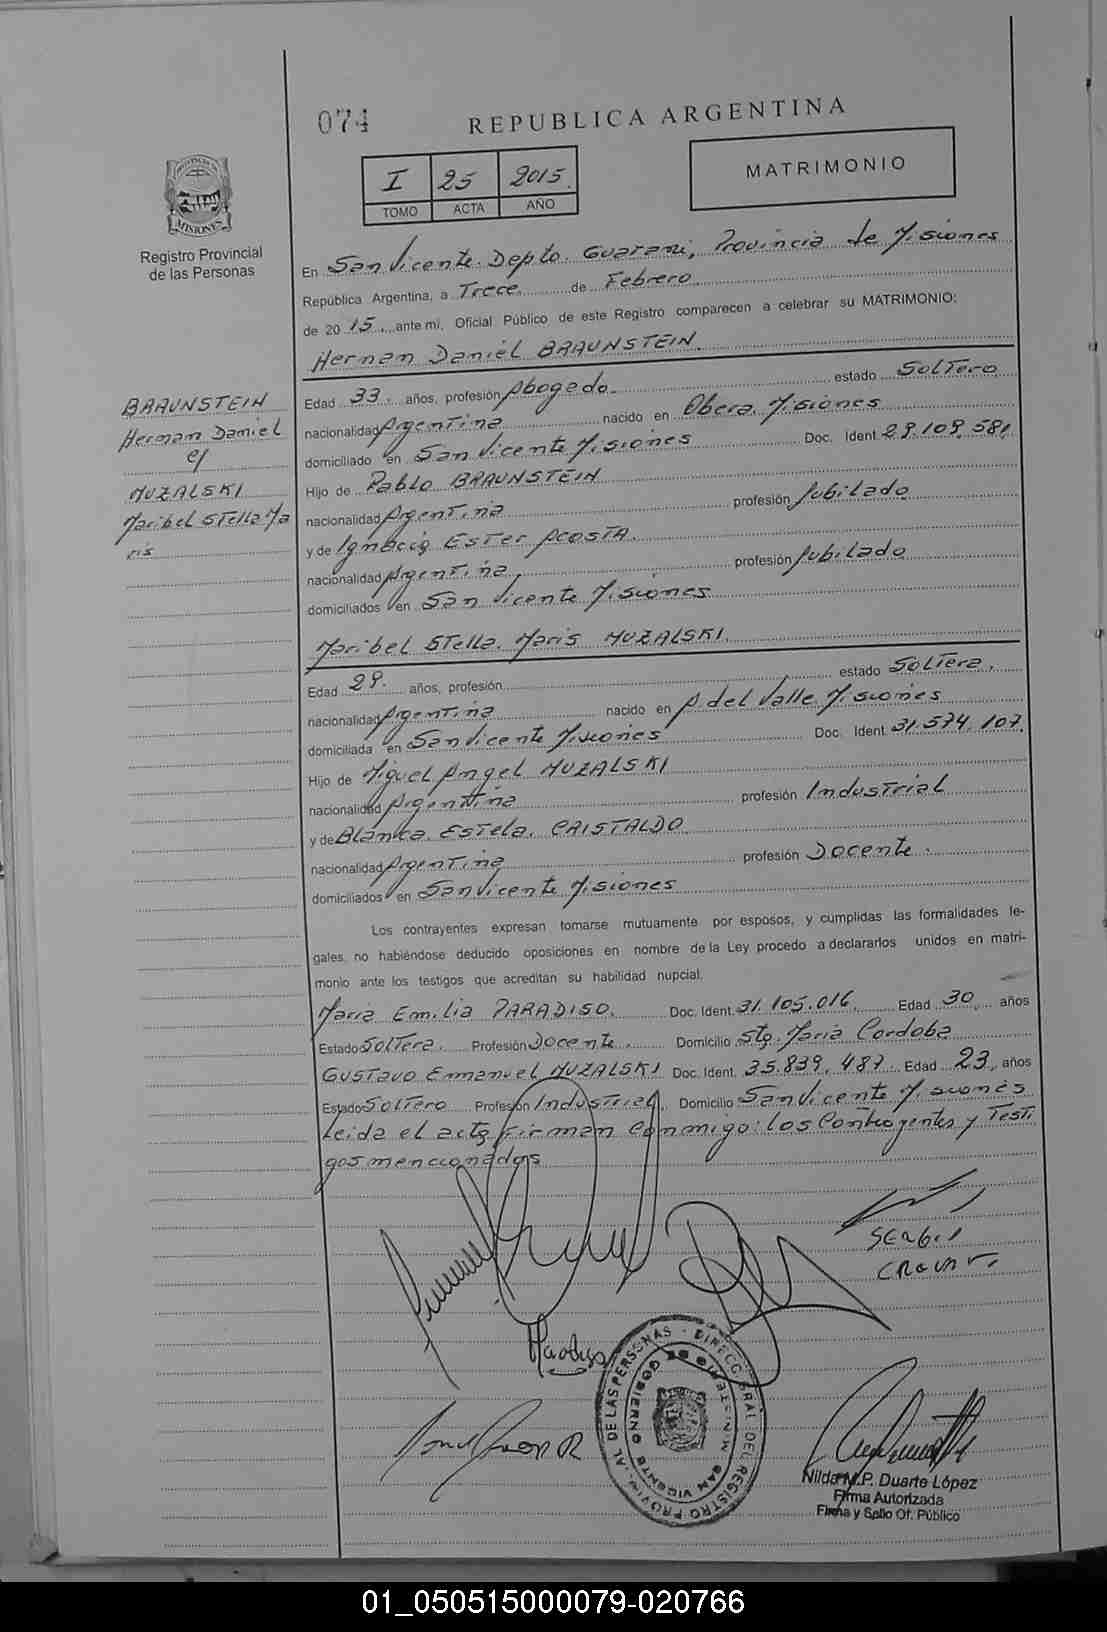 074
REPUBLICA ARGENTINA
I 25 2015.
TOMO ACTA AÑO
MATRIMONIO
PROVINCIA DE
MISIONES
Registro Provincial
de las Personas
En San Vicente. Depto. Guarani, Provincia de Misiones
República Argentina, a Trece de Febrero
de 2015, ante mi, Oficial Público de este Registro comparecen a celebrar su MATRIMONIO:
Hernan Daniel BRAUNSTEIN.
BRAUNSTEIN
Hernan Daniel
c/
MUZALSKI
Maribel Stella Ma
ris
Edad 33. años, profesión Abogado. estado Soltero
nacionalidad Argentina nacido en Obera. Misiones
domiciliado en San Vicente Misiones Doc. Ident. 29.109.581,
Hijo de Pablo BRAUNSTEIN
nacionalidad Argentina profesión Jubilado
y de Ignacia Ester ACOSTA.
nacionalidad Argentina profesión Jubilado
domiciliados en San Vicente Misiones
Maribel Stella. Maris MUZALSKI.
Edad 29. años, profesión estado Soltera.
nacionalidad Argentina nacido en A. del Valle Misiones
domiciliada en San Vicente Misiones Doc. Ident. 31.574.107.
Hijo de Miguel Angel MUZALSKI
nacionalidad Argentina profesión Industrial
y de Blanca. Estela. CRISTALDO
nacionalidad Argentina profesión Docente.
domiciliados en San Vicente Misiones
Los contrayentes expresan tomarse mutuamente por esposos, y cumplidas las formalidades le-
gales, no habiéndose deducido oposiciones en nombre de la Ley procedo a declararlos unidos en matri-
monio ante los testigos que acreditan su habilidad nupcial.
Maria Emilia PARADISO. Doc. Ident. 31.105.016. Edad 30 años
Estado Soltera. Profesión Docente. Domicilio Sta. Maria Cordoba
GUSTAVO Emmanuel MUZALSKI Doc. Ident. 35.839.487. Edad 23, años
Estado Soltero Profesión Industrial. Domicilio San Vicente Misiones
Leida el acta firman conmigo: los Contrayentes y Testi
gos mencionados
DIREC. GRAL. DEL REGISTRO PROVINCIAL DE LAS PERSONAS
MINISTERIO DE GOBIERNO
SAN VICENTE
Nilda M.P. Duarte López
Firma Autorizada
Firma y Sello Of. Público
01_050515000079-020766